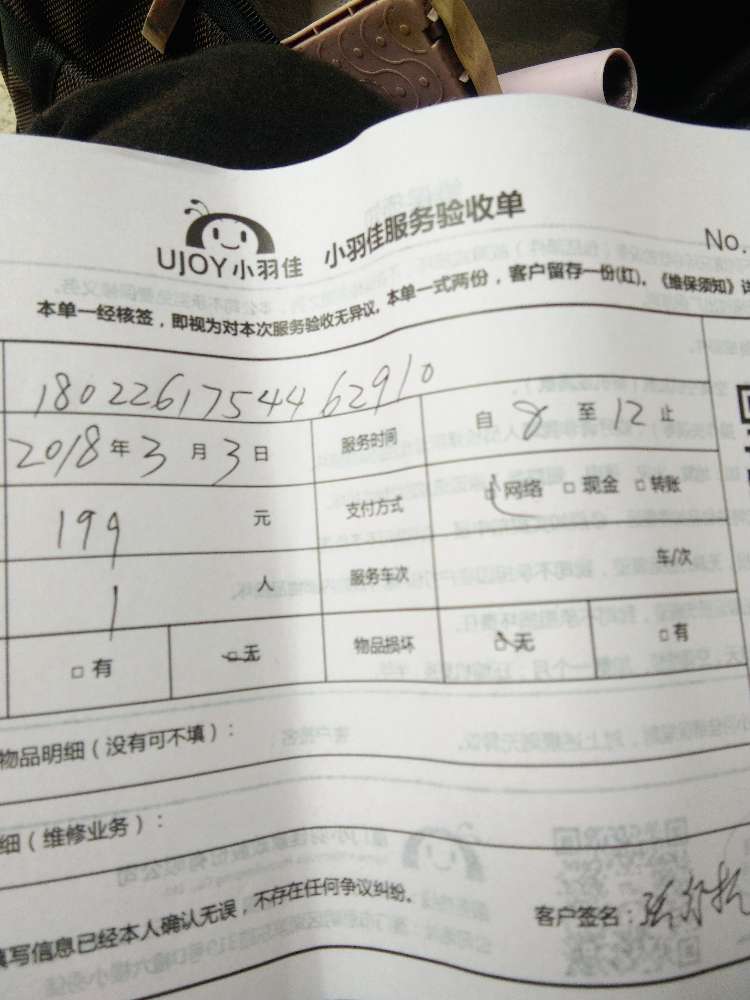 UJOY小羽佳 小羽佳服务验收单
No.
本单一经核签，即视为对本次服务验收无异议。本单一式两份，客户留存一份(红)。《维保须知》详
1802261754462910
2018年3月3日 服务时间 自8至12止
199元 支付方式 □网络 □现金 □转账
1人 服务车次 车/次
□有 □无 物品损坏 □无 □有
物品明细（没有可不填）：
细（维修业务）：
填写信息已经本人确认无误，不存在任何争议纠纷。 客户签名：